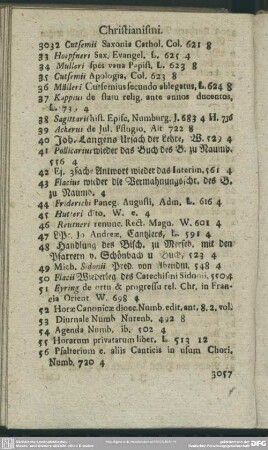 Christianismi.
3032 Cutsemii Saxonia Cathol. Col. 621 8
33 Hoepfneri Sax. Evangel. L. 625 4
34 Mulleri spes vana Papist. L. 623 8
35 Cutsemii Apologia, Col. 623 8
36 Mülleri Cutsemius secundo ablegatus, L. 624 8
37 Kappius de statu relig. ante annos ducentos,
L. 739 4
38 Sagittarii hist. Episc. Numburg. J. 683 4 H. 736
39 Ackerus de Jul. Pflugio, Alt 722 8
40 Joh. Langens Ursach der Lehre, W. 529 4
41 Pollicarius wieder das Buch des B. zu Naumb.
556 4
42 Ej. 3fache Antwort wieder das Interim, 561 4
43 Flacius wieder die Vermahnungsschr. des B.
zu Naumb. 4
44 Friderichi Paneg. Augusti, Adm. L. 616 4
45 Hutteri dito, W. e. 4
46 Reutneri renunc. Rect. Magn. W. 601 4
47 Jac. Andreæ, L. 591 4
48 Handlung des Bisch. zu Merseb. mit den
Pfarrern v. Schönbach u Buch, 523 4
49 Mich. Sidonii Pred. von Abendm. 548 4
50 Flacii Wiederleg. des Catechismi Sidonii, 550 4
51 Eyring de ortu & progressu rel. Chr. in Fran-
cia Orient. W. 698 4
52 Horæ Canonicæ dioec. Numb. edit. ant. 8. 2. vol.
53 Diurnale Numb Nurenb. 492 8
54 Agenda Numb. ib. 502 4
55 Horarum privatarum liber. L. 513 12
56 Psalterium c. aliis Canticis in usum Chori,
Numb. 720 4
3057